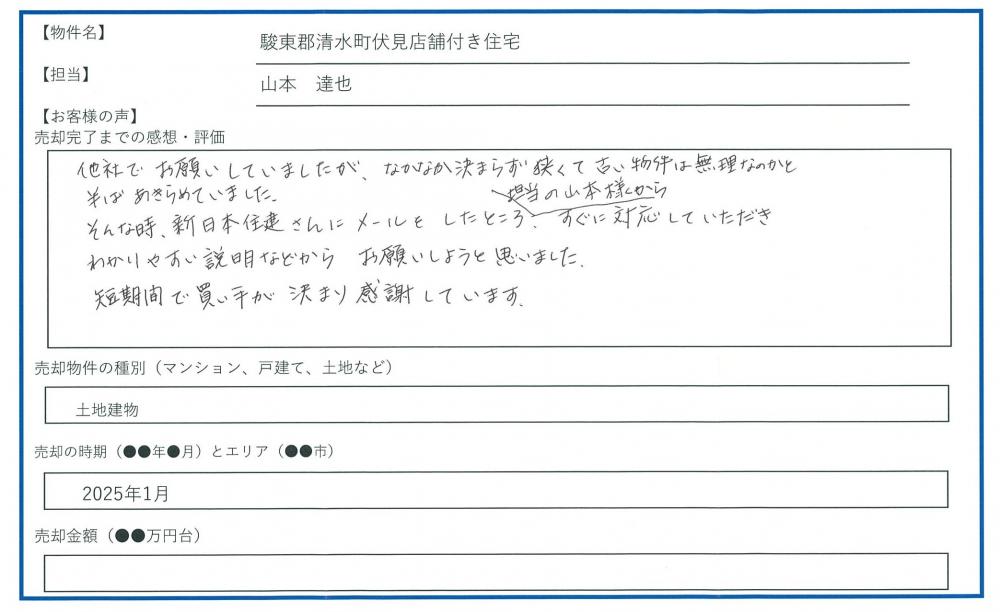 【物件名】
駿東郡清水町伏見店舗付き住宅
【担当】
山本　達也
【お客様の声】
売却完了までの感想・評価
他社で お願いしていましたが、なかなか決まらず 狭くて 古い物件は無理なのかと
半ば あきらめていました。
担当の山本様から
そんな時、新日本住建さんに メールを したところ、すぐに対応していただき
わかりやすい説明などから お願いしようと思いました。
短期間で買い手が 決まり 感謝しています。
売却物件の種別（マンション、戸建て、土地など）
土地建物
売却の時期（●●年●月）とエリア（●●市）
2025年1月
売却金額（●●万円台）